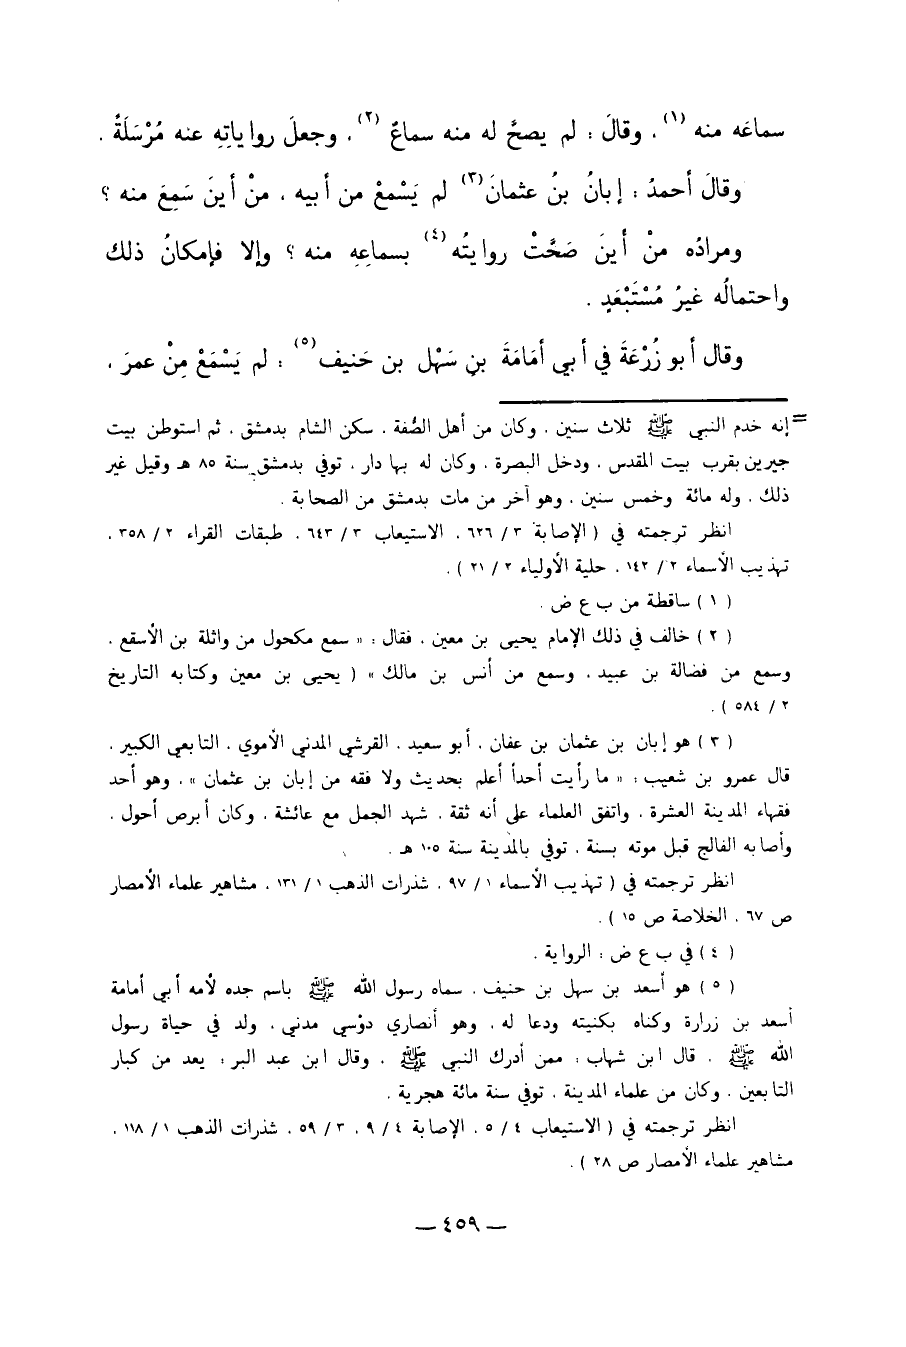 سماعَه منه (١) ، وقالَ : لم يصحَّ له منه سماعٌ (٢) ، وجعلَ رواياتِهِ عنه مُرْسَلَةً .
وقالَ أحمدُ : إبانُ بنُ عثمانَ (٣) لم يَسْمعْ من أبيه ، منْ أينَ سَمِعَ منه ؟
ومرادُه منْ أينَ صَحَّتْ روايتُه (٤) بسماعِهِ منه ؟ وإلا فإمكانُ ذلك
واحتمالُه غيرُ مُسْتَبْعَدٍ .
وقال أبو زُرْعَةَ في أبي أمَامَةَ بنِ سَهْل بن حَنيف (٥) : لم يَسْمَعْ مِنْ عمرَ ،
= إنه خدم النبي ﷺ ثلاث سنين ، وكان من أهل الصُّفة ، سكن الشام بدمشق ، ثم استوطن بيت
جيرين بقرب بيت المقدس ، ودخل البصرة ، وكان له بها دار ، توفي بدمشق سنة ٨٥ هـ وقيل غير
ذلك ، وله مائة وخمس سنين ، وهو آخر من مات بدمشق من الصحابة .
انظر ترجمته في ( الإصابة ٣ / ٦٢٦ ، الاستيعاب ٣ / ٦٤٣ ، طبقات القراء ٢ / ٣٥٨ ،
تهذيب الأسماء ٢ / ١٤٢ ، حلية الأولياء ٢ / ٢١ ) .
( ١ ) ساقطة من ب ع ض .
( ٢ ) خالف في ذلك الإمام يحيى بن معين ، فقال : « سمع مكحول من واثلة بن الأسقع ،
وسمع من فضالة بن عبيد ، وسمع من أنس بن مالك » ( يحيى بن معين وكتابه التاريخ
٢ / ٥٨٤ ) .
( ٣ ) هو إبان بن عثمان بن عفان ، أبو سعيد ، القرشي المدني الأموي ، التابعي الكبير ،
قال عمرو بن شعيب : « ما رأيت أحداً أعلم بحديث ولا فقه من إبان بن عثمان » ، وهو أحد
فقهاء المدينة العشرة ، واتفق العلماء على أنه ثقة ، شهد الجمل مع عائشة ، وكان أبرص أحول ،
وأصابه الفالج قبل موته بسنة ، توفي بالمدينة سنة ١٠٥ هـ .
انظر ترجمته في ( تهذيب الأسماء ١ / ٩٧ ، شذرات الذهب ١ / ١٣١ ، مشاهير علماء الأمصار
ص ٦٧ ، الخلاصة ص ١٥ ) .
( ٤ ) في ب ع ض : الرواية .
( ٥ ) هو أسعد بن سهل بن حنيف ، سماه رسول الله ﷺ باسم جده لأمه أبي أمامة
أسعد بن زرارة وكناه بكنيته ودعا له ، وهو أنصاري دوْسي مدني ، ولد في حياة رسول
الله ﷺ ، قال ابن شهاب : ممن أدرك النبي ﷺ ، وقال ابن عبد البر : يعد من كبار
التابعين ، وكان من علماء المدينة ، توفي سنة مائة هجرية .
انظر ترجمته في ( الاستيعاب ٤ / ٥ ، الإصابة ٤ / ٩ ، ٣ / ٥٩ ، شذرات الذهب ١ / ١١٨ ،
مشاهير علماء الأمصار ص ٢٨ ) .
— ٤٥٩ —